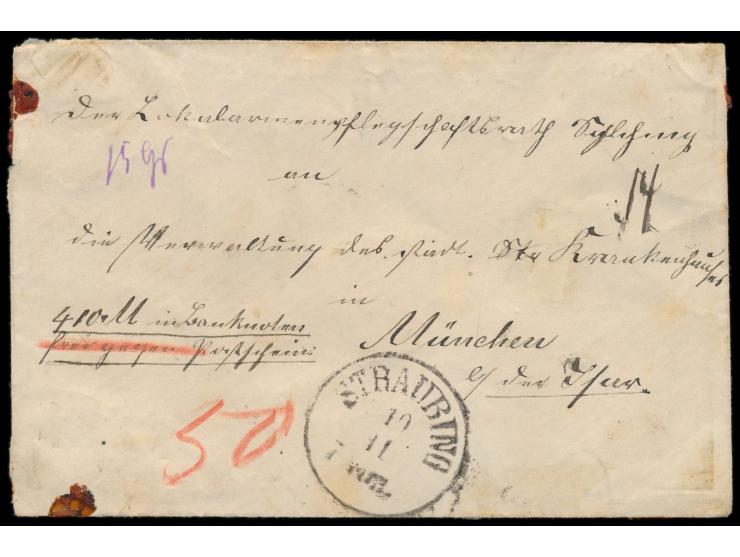 Der Lokalarmenpflegschaftsrath
15 gr
an
14
die Verwaltung des städt. Krankenhauses
in
410 M in Banknoten
München
frei gegen Postschein:
a/ der Isar.
STRAUBING
10
11
50